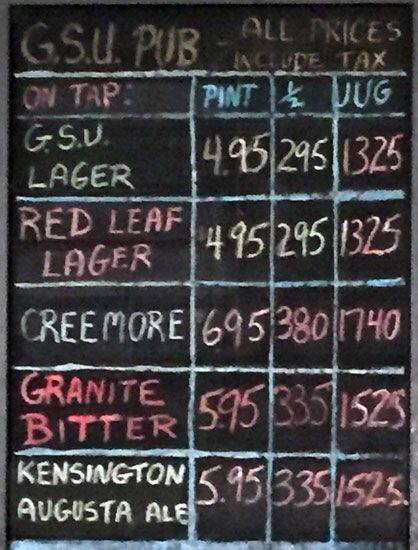 G.S.U. PUB - ALL PRICES
INCLUDE TAX
ON TAP: PINT ½ JUG
G.S.U.
LAGER 4.95 295 1325
RED LEAF
LAGER 4.95 295 1325
CREEMORE 695 380 1740
GRANITE
BITTER 595 335 1525
KENSINGTON
AUGUSTA ALE 5.95 335 1525.